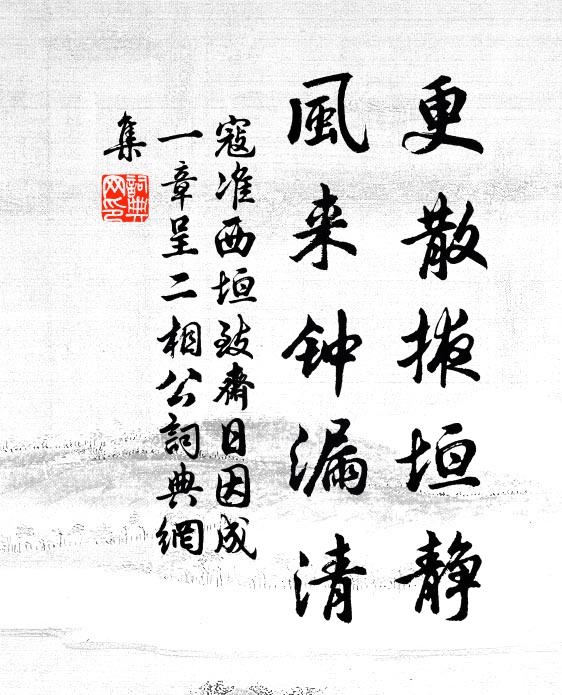 更散掖垣静
風来钟漏清
寇准西垣致齋日因成
一章呈二相公詞典網
集
詞典
网印